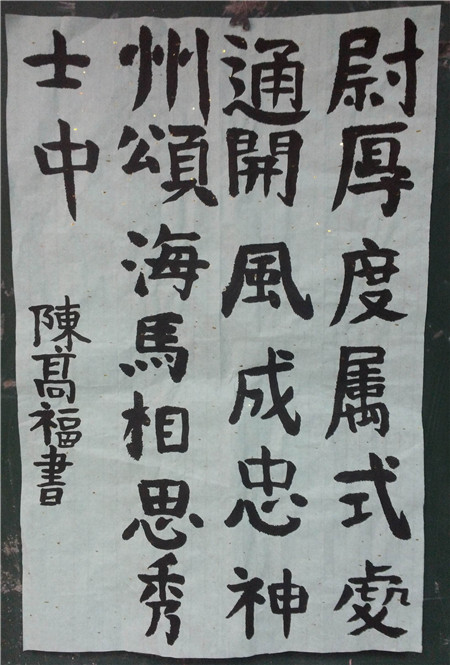 尉厚度属式處
通開風成忠神
州頌海馬相思秀
士中
陳高福書